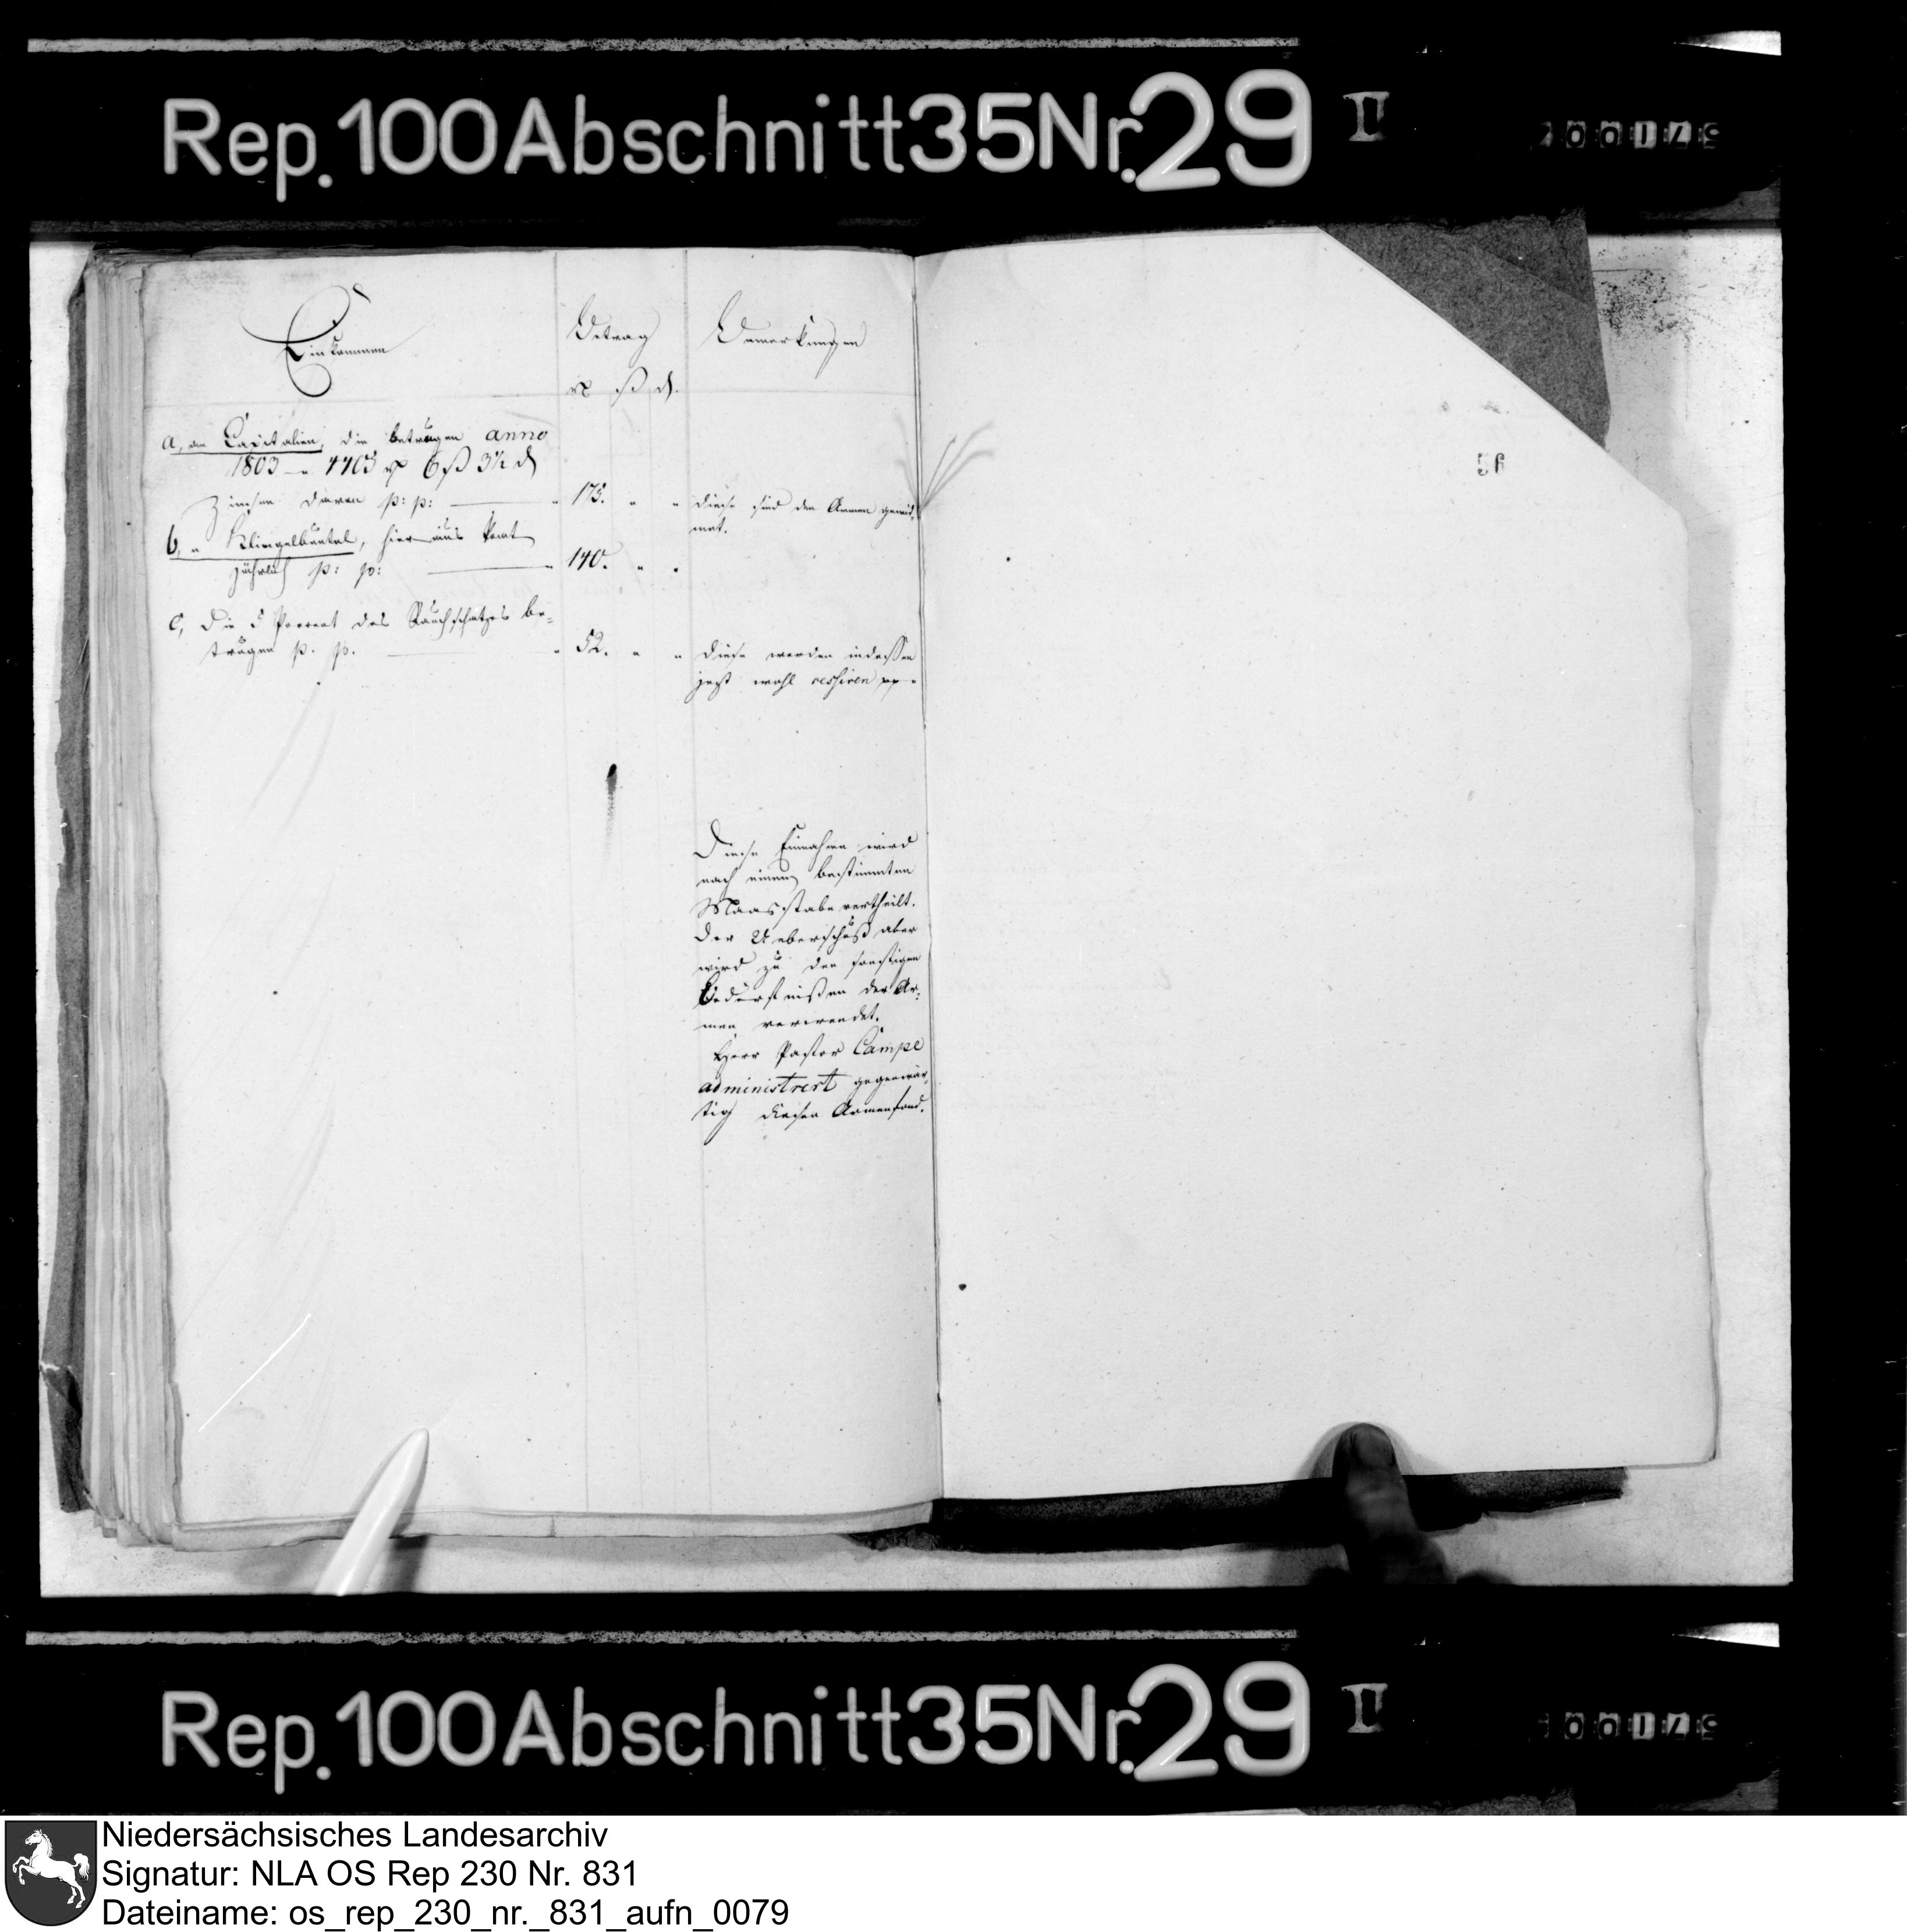 Rep. 100 Abschnitt 35 Nr. 29 II
Einkommen
Betrag
Bemerkungen
rt ß d.
a, an Capitalien, die betrugen anno
1803 — 4403 rt 6 ß 3½ d
Zinsen davon p: p: — 175. " "
diese sind den Armen gewid-
met.
b, " Klingelbeutel, hieraus komt
jährlich p: p: — 140. " "
c, Die 5 Procent des Rauchschatzes be-
trugen p. p. — 52. " "
diese werden indessen
jezt wohl cessiren pp
Diese Einnahme wird
nach einem bestimmten
Maasstabe vertheilt.
der Ueberschuß aber
wird zu den sonstigen
Bedürfnißen der Ar-
men verwendet.
Herr Pastor Campe
administrert gegenwär-
tig diesen Armenfond.
56
Rep. 100 Abschnitt 35 Nr. 29 II
Niedersächsisches Landesarchiv
Signatur: NLA OS Rep 230 Nr. 831
Dateiname: os_rep_230_nr._831_aufn_0079